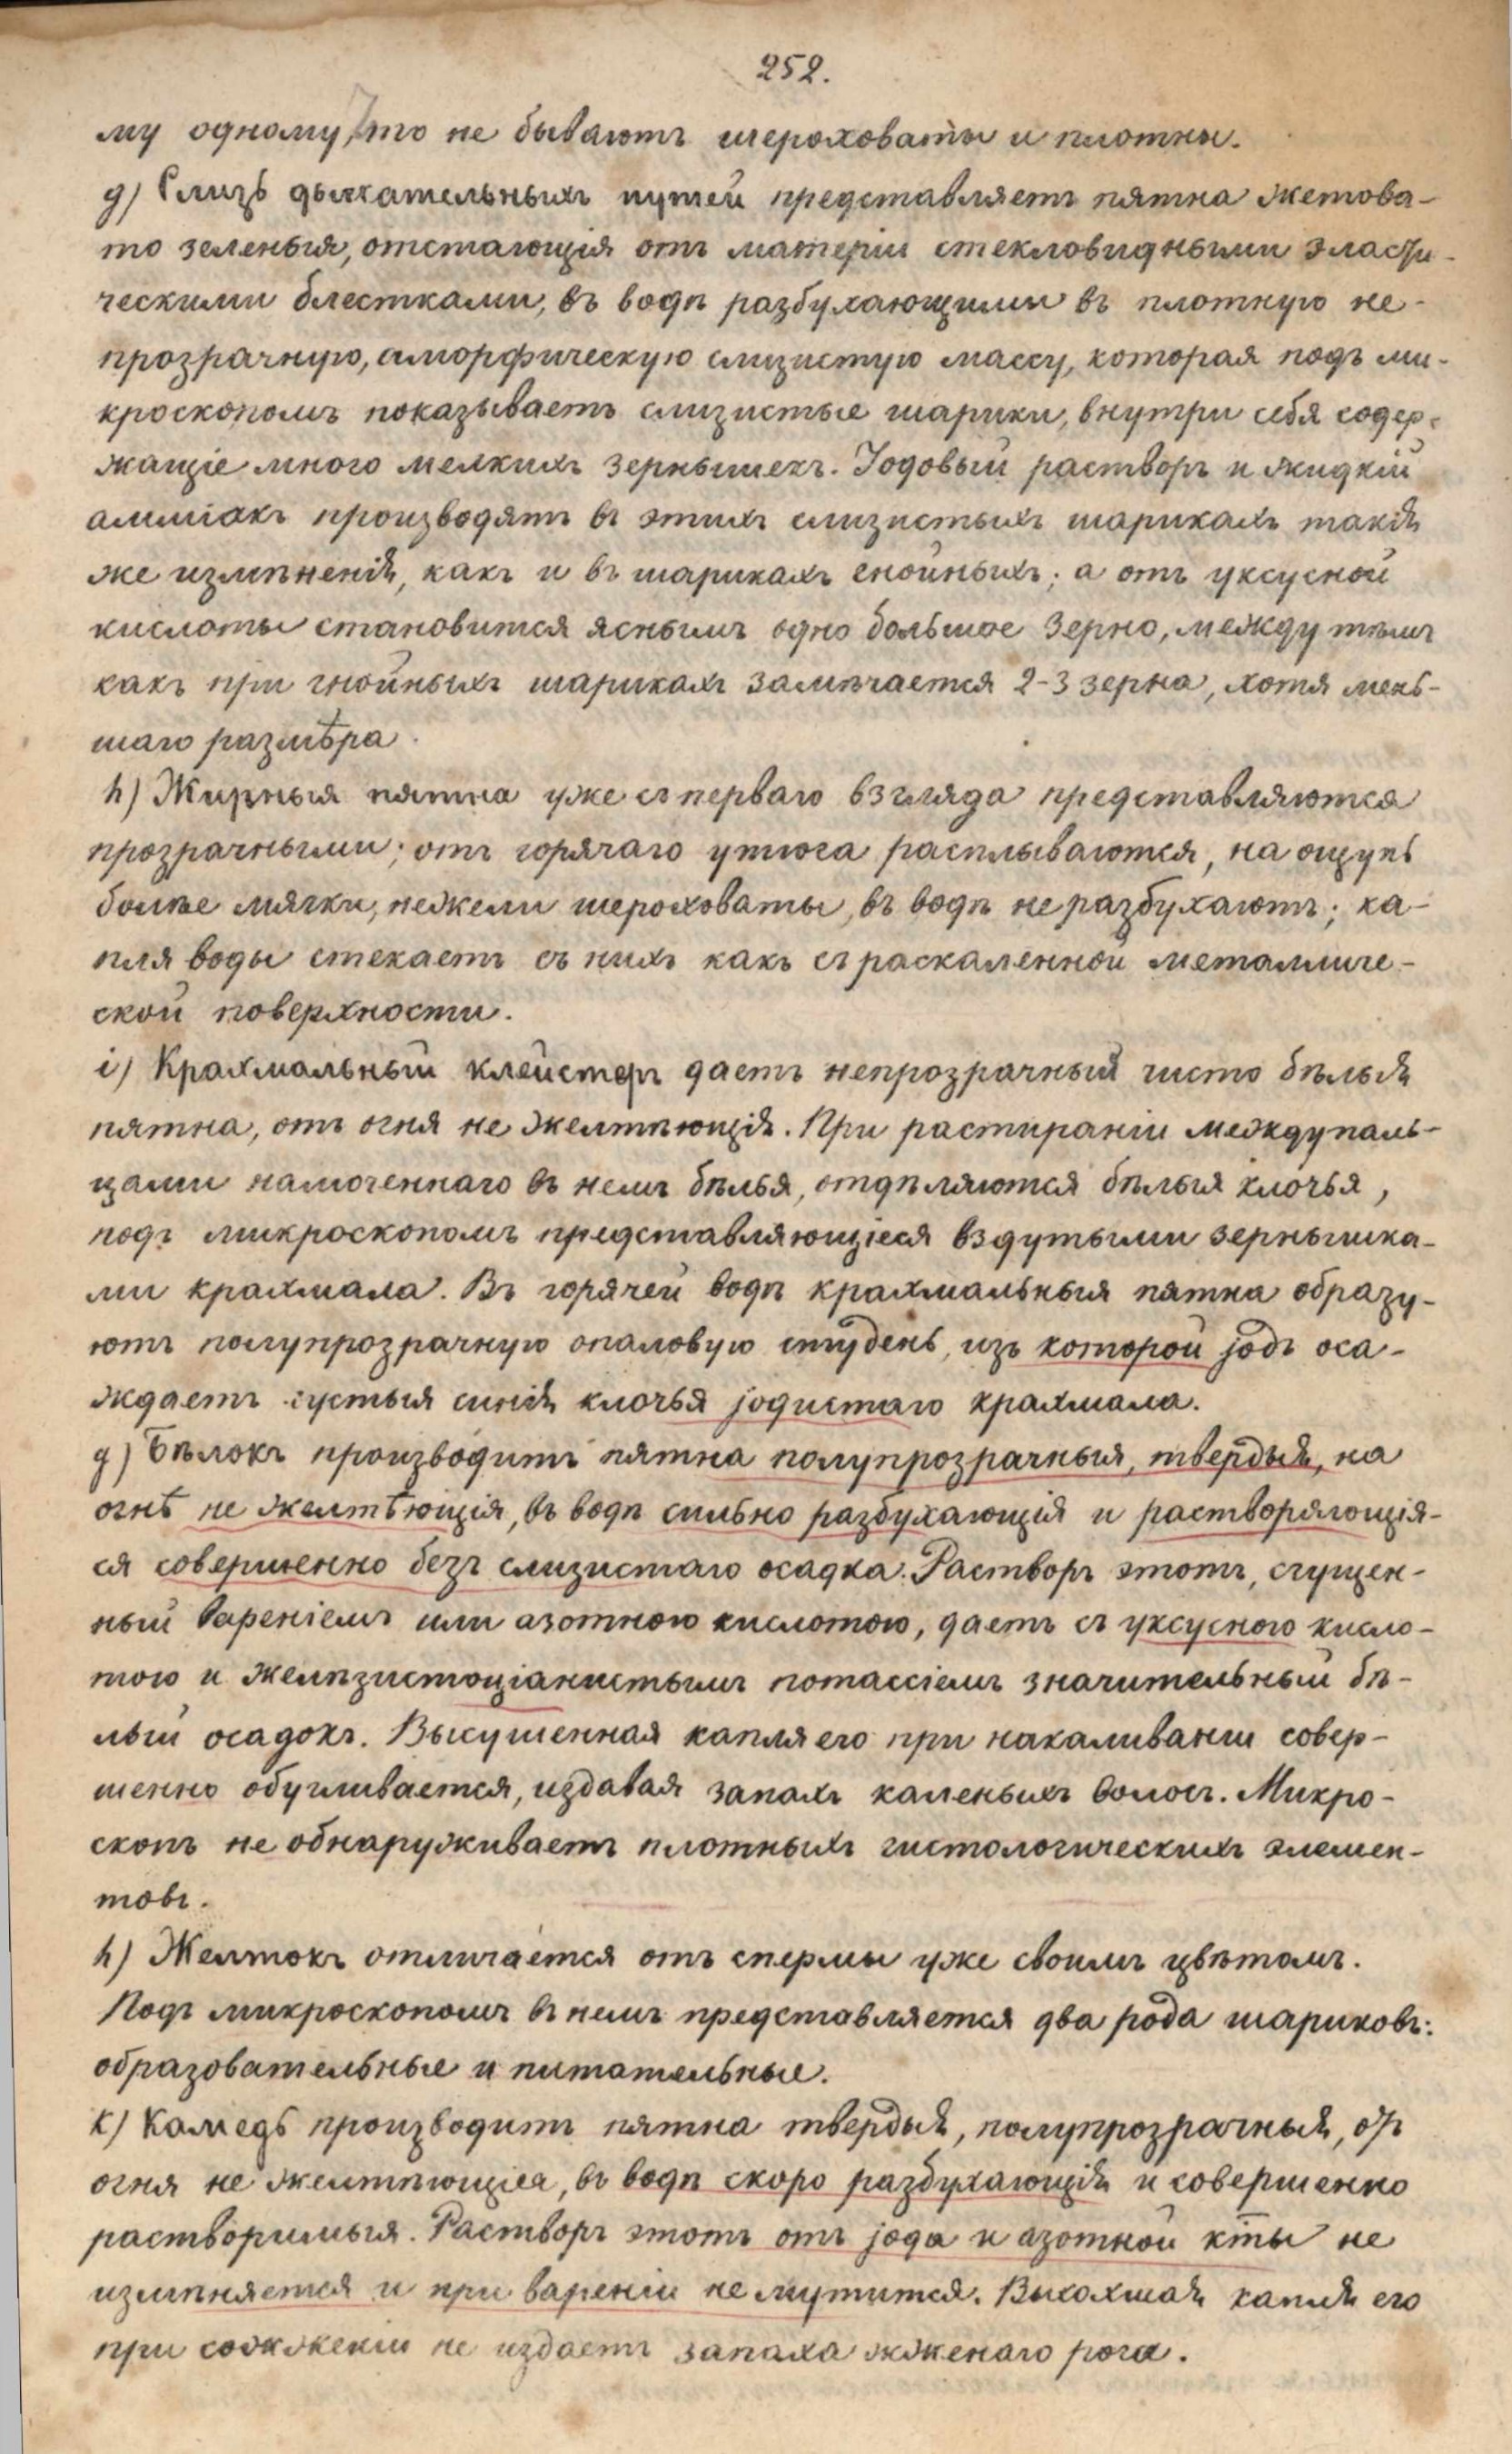 252.
му одному, то не бываютъ шероховаты и плотны.
g) Слизь дыхательныхъ путей представляетъ пятна желтова-
то зеленыя, отстающія отъ матеріи стекловидными эласти-
ческими блестками, въ водѣ разбухающими въ плотную не-
прозрачную, аморфическую слизистую массу, которая подъ ми-
кроскопомъ показываетъ слизистые шарики, внутри себя содер-
жащіе много мелкихъ зернышекъ. Іодовый растворъ и жидкій
амміакъ производятъ въ этихъ слизистыхъ шарикахъ такія
же измѣненія, какъ и въ шарикахъ гнойныхъ; а отъ уксусной
кислоты становится яснымъ одно большое зерно, между тѣмъ
какъ при гнойныхъ шарикахъ замѣчается 2-3 зерна, хотя мень-
шаго размѣра.
h) Жирныя пятна уже съ перваго взгляда представляются
прозрачными; отъ горячаго утюга расплываются, на ощупь
болѣе мягки, нежели шероховаты, въ водѣ не разбухаютъ; ка-
пля воды стекаетъ съ нихъ какъ съ раскаленной металличе-
ской поверхности.
i) Крахмальный клейстеръ даетъ непрозрачный чисто бѣлыя
пятна, отъ огня не желтѣющія. При растираніи между паль-
цами намоченнаго въ немъ бѣлья, отдѣляются бѣлыя клочья,
подъ микроскопомъ представляющіеся вздутыми зернышка-
ми крахмала. Въ горячей водѣ крахмальныя пятна образу-
ютъ полупрозрачную опаловую студень, изъ которой jодъ оса-
ждаетъ густыя синія клочья jодистаго крахмала.
g) Бѣлокъ производитъ пятна полупрозрачныя, твердыя, на
огнѣ не желтѣющія, въ водѣ сильно разбухающія и растворяющія-
ся совершенно безъ слизистаго осадка. Растворъ этотъ, сгущен-
ный вареніемъ или азотною кислотою, даетъ съ уксусною кисло-
тою и желѣзистоціанистымъ потассіемъ значительный бѣ-
лый осадокъ. Высушенная капля его при накаливаніи совер-
шенно обугливается, издавая запахъ каленыхъ волосъ. Микро-
скопъ не обнаруживаетъ плотныхъ гистологическихъ элемен-
товъ.
h) Желтокъ отличается отъ спермы уже своимъ цвѣтомъ.
Подъ микроскопомъ въ немъ представляется два рода шариковъ:
образовательные и питательные.
k) Камедь производитъ пятна твердыя, полупрозрачныя, отъ
огня не желтѣющіея, въ водѣ скоро разбухающія и совершенно
растворимыя. Растворъ этотъ отъ jода и азотной кты не
измѣняется и при вареніи не мутится. Высохшая капля его
при сожженіи не издаетъ запаха жженаго рога.